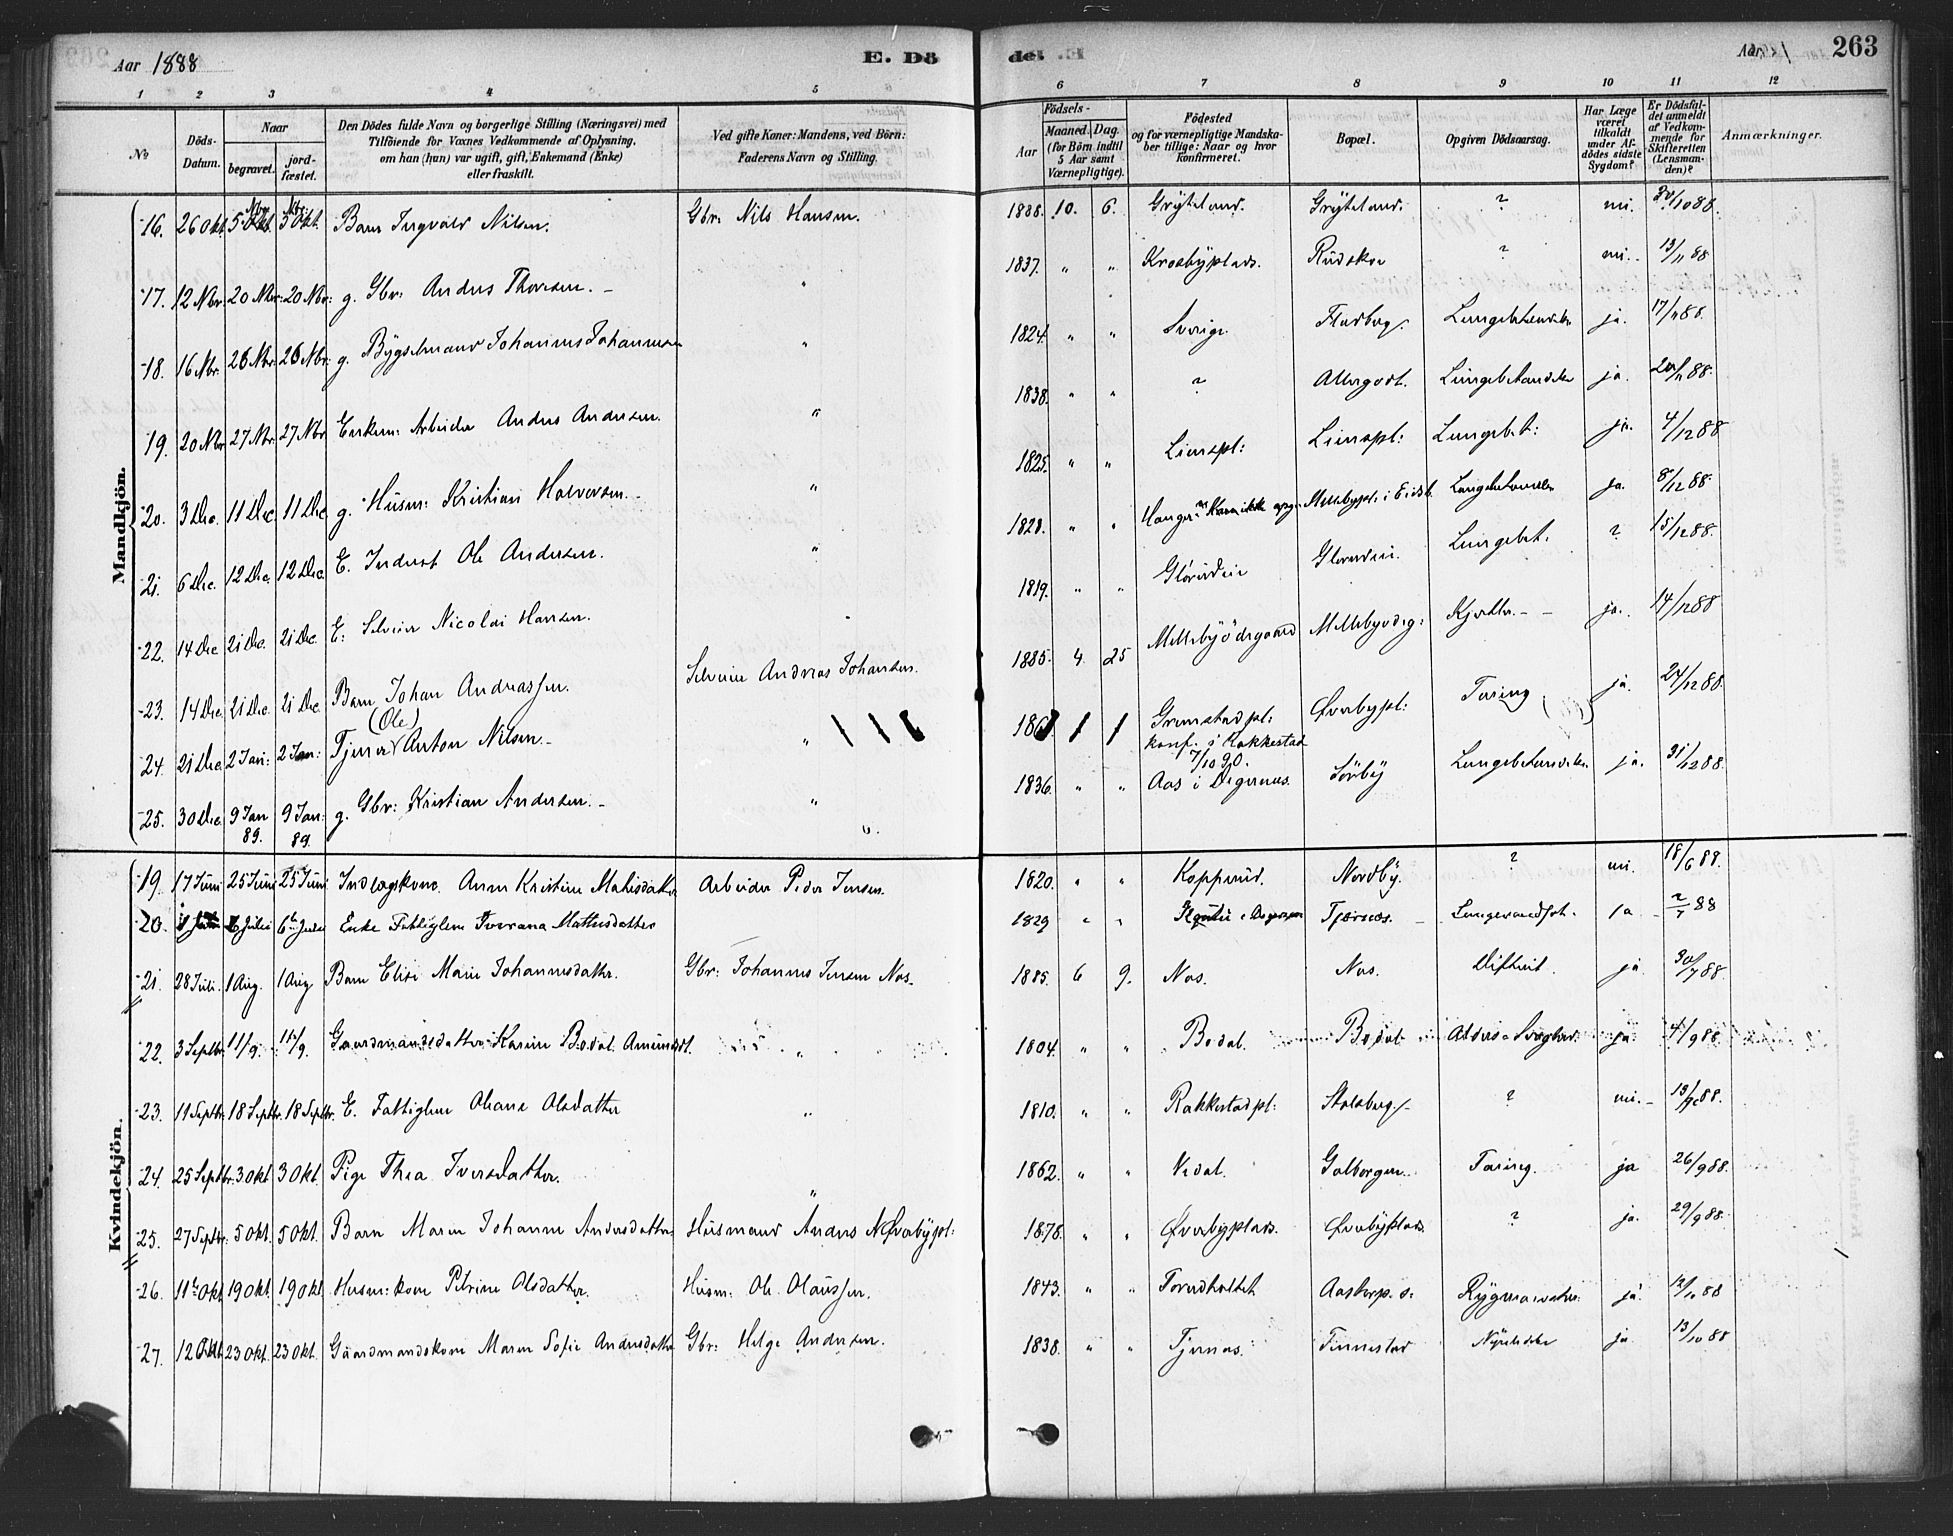 Aar 1888 E. Dö
de. E. Aar 1 263
1 2 3 4 5 6 7 8 9 10 11 12
No
Döds-Datum.
Naar
begravet. jord-fæstet.
Den Dödes fulde Navn og borgerlige Stilling (Næringsvei) med Tilföiende for Voxnes Vedkommende af Oplysning, om han (hun) var ugift, gift, Enkemand (Enke) eller fraskilt.
Ved gifte Koner: Mandens, ved Börn: Faderens Navn og Stilling.
Födsels-
Aar Maaned. Dag.
(for Börn indtil 5 Aar samt Værnepligtige).
Födested og for værnepligtige Mandskaber tillige: Naar og hvor konfirmeret.
Bopæl.
Opgiven Dödsaarsag.
Har Læge været tilkaldt under Afdödes sidste Sygdom?
Er Dödsfaldet anmeldt af Vedkommende for Skifteretten (Lensmanden)?
Anmærkninger.
Mandkjön.
16. 26 Okt. 5 Nbr. 5 Nbr. Barn Ingvald Nilsen. Gbr: Nils Hansen. 1888. 10. 6. Gryteland. Gryteland. ? nei. 30/10 88.
17. 12 Nbr. 20 Nbr: 20 Nbr: g. Gbr: Anders Thoresen. " 1837. " " Krosbyplads. Rudskou ? nei. 13/11 88
18. 16 Nbr. 26 Nbr. 26 Nbr: g. Bygselmand Johannes Johannesen " 1824. " " Sverige. Fladberg. Lungebetændelse ja. 17/11 88.
19. 20 Nbr 27 Nbr. 27 Nbr Enkem: Arbeider Anders Andersen. " 1838. " " ? Allergodt. Lungebetændelse ja. 20/11 88.
20. 3 Dec. 11 Dec. 11 Dec g. Husm: Kristian Halvorsen. " 1825. " " Lienspl: Lienspl: Lungebet: ja. 4/12 88
21. 6 Dec. 12 Dec. 12 Dec. E. Inderst Ole Andersen. " 1828. " " Hanger Mellebypl: i Eidsb. Lungebetændelse ja. 8/12 88.
22. 14 Dec 21 Dec. 21 Dec. E: Selveier Nicolai Hansen. " 1819. " " Gloreideie Gloreideie. Lungebet. ? 15/12 88.
23. 14 Dec. 21 Dec. 21 Dec. Barn Johan Andreassen. Selveier Andreas Johansen. 1885. 4. 25 Mellebyödegaard Mellebyödeg: ja. 14/12 88
24. 21 Dec. 2 Jan: 2 Jan: Tjener (Ole) Anton Nilsen. " 186 Grimstadpl: konf. i Rakkestad 7/10 90. Øverbypl: Tæring ja. 24/12 88.
25. 30 Dec. 9 Jan 89. 9 Jan: 89. g. Gbr: Kristian Andersen. " 1836. " " Aas i Degernes. Sörby Lungebetændelse. ja. 31/12 88.
Kvindekjön.
19. 17 Juni 25 Juni 25 Juni Indlægskone. Anne Kristine Mathisdatter Arbeider Peder Jensen. 1820. " " Kopperud. Nordby. ? nei. 18/6 88.
20. 6 Julii 6te Julii Enke Fattiglem Mathisdatter 1829 " " i Degernes Tjernæs. ja 2/7 88
21. 28 Juli. 1 Aug. 1 Aug Barn Elise Marie Johannesdatter. Gbr: Johannes Jensen Nes. 1885. 6 9. Nes. Nes. Difterit. ja 30/7 88.
22. 3 Septbr. 11/9. 11/9. Gaardmandsdatter Karine Bodal Amundsdt. " 1804. " " Bodal. Bodal Alders-Svaghed. ja. 4/9 88.
23. 11 Septbr. 18 Septbr. 18 Septbr. E. Fattiglem Oleane Olsdatter " 1810. " " Rakkestadpl: Stolsberg. ? nei. 13/9 88.
24. 25 Septbr. 3 Okt 3 Okt. Pige Thea Iversdatter. " 1862. " " Vedal. Gulborgen. Tæring. ja 26/9 88.
25. 27 Septbr. 5 Okt. 5 Okt. Barn Maren Johanne Andersdatter Husmand Anders N. Øverbypl: 1878. " " Øverbyplads. Øverbyplads ? ja. 29/9 88.
26. 11te Okt 19 Okt. 19 Okt Husm: kone Petrine Olsdatter. Husm: Ole Olaussen. 1843. " " Aastorp. ja. 12/10 88
27. 12 Okt 23 Okt. 23 Okt. Gaardmandskone Maren Sofie Andersdatter Gbr: Helge Andersen. 1838. " " Tjernes. Tinnestad ja. 13/10 88